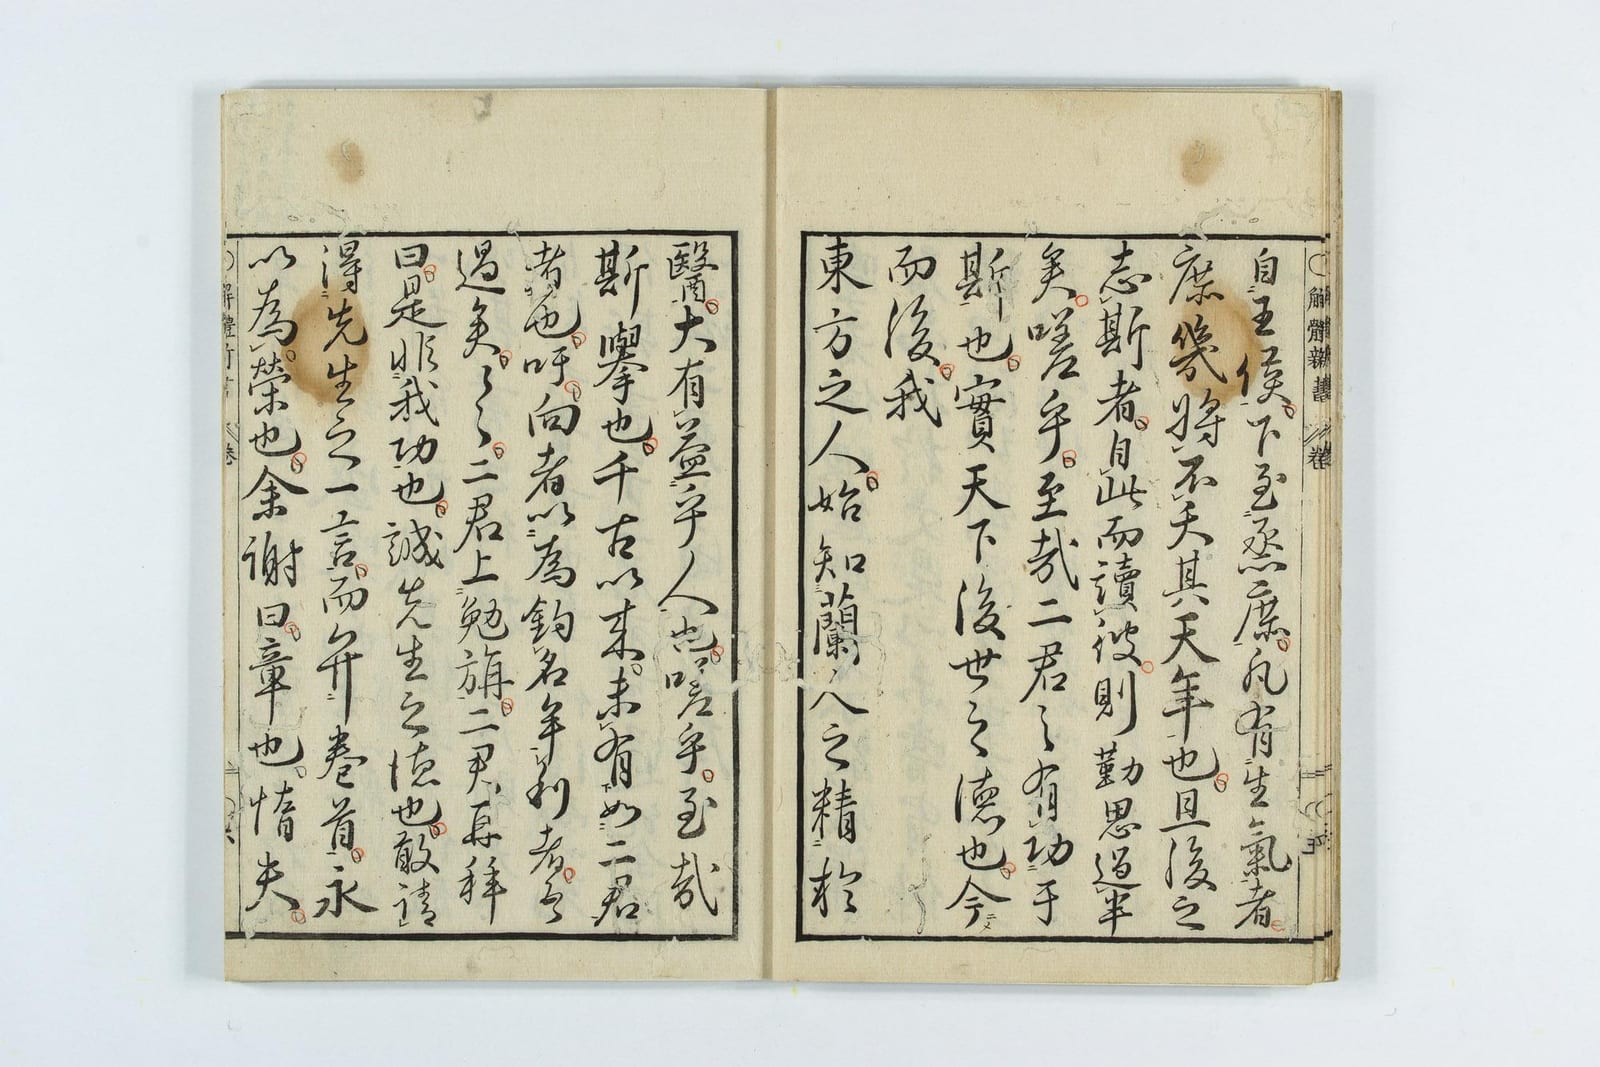 解體新書 卷
自王侯下至烝庶凡有生氣者
庶幾將不夭其天年也且後之
志斯者自此而讀彼則勤思過半
矣嗟乎至哉二君之有功于
斯也實天下後世之德也今
而後我
東方之人始知蘭人之精於
醫大有益乎人也嗟乎至哉
斯擧也千古以來未有如二君
者也吁向者以為釣名年利者吾
過矣々々二君上勉旃二君再拜
曰是非我功也誠先生之德也敢請
得先生之一言而弁卷首永
以為榮也余謝曰章也惰夫
解體新書 卷